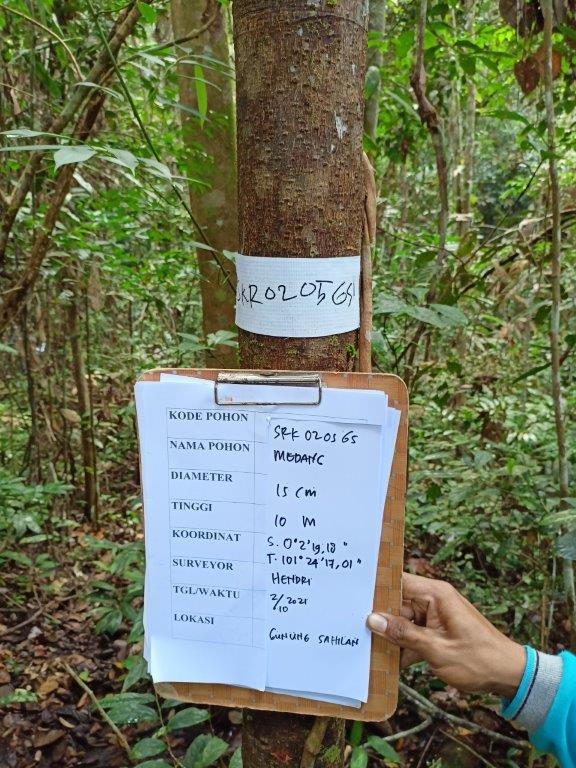 SKR020565
KODE POHON SRK 020565
NAMA POHON MEDANG
DIAMETER 15 cm
TINGGI 10 M
KOORDINAT S. 0°2'19,18"
T. 101°24'17,01"
SURVEYOR HENDRI
TGL/WAKTU 2/10 2021
LOKASI GUNUNG SAHILAN